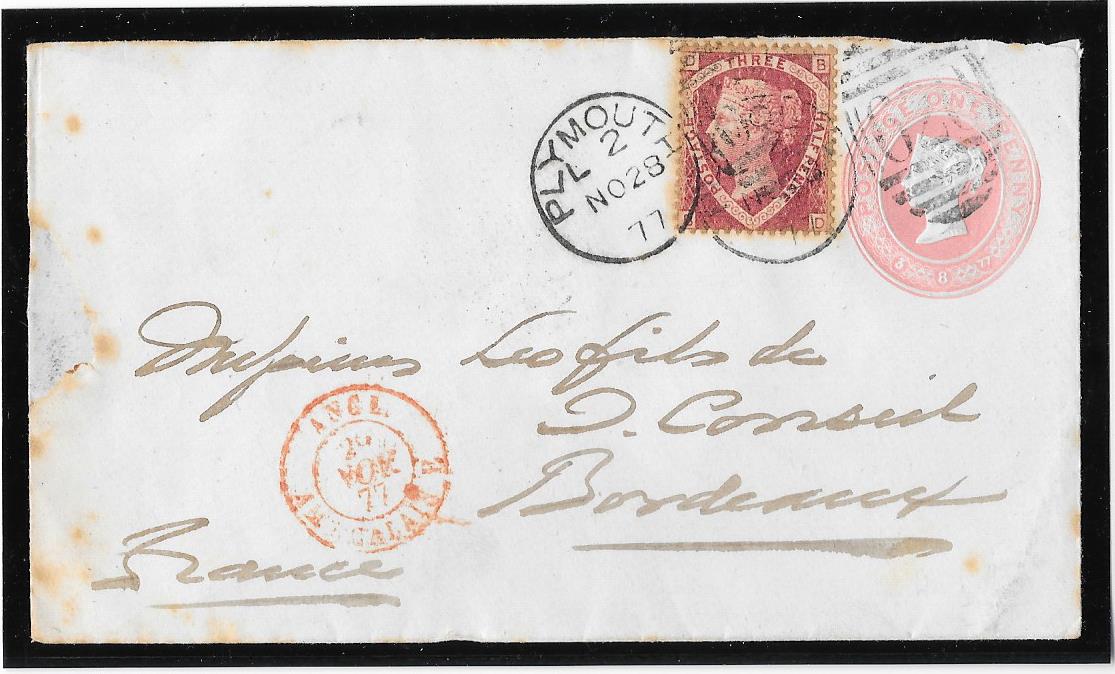 PLYMOUTH
L 2
NO 28
77
D B
THREE
HALF PENNY
D
POSTAGE ONE PENNY
3 8 77
Messieurs Les fils de
D. Conseil
Bordeaux
France
ANGL.
29
NOV.
77
CALAIS